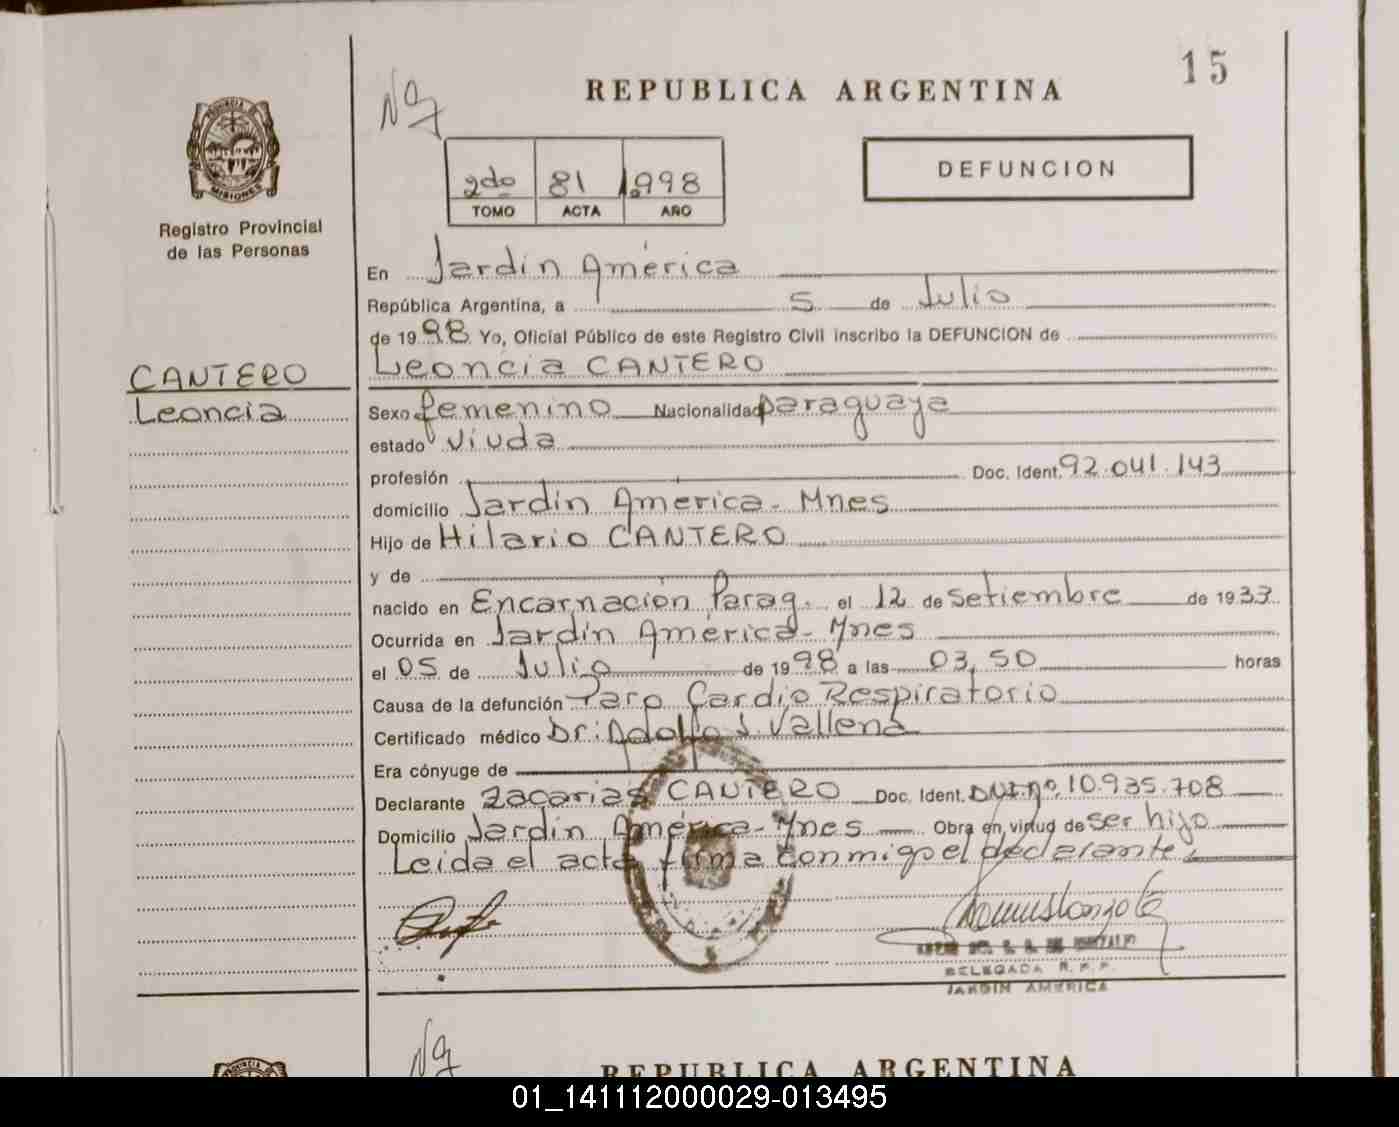 15
REPUBLICA ARGENTINA
DEFUNCION
2do 81 1.998
TOMO ACTA AÑO
PROVINCIA DE
MISIONES
Registro Provincial
de las Personas
CANTERO
Leoncia
En Jardín América
República Argentina, a 5 de Julio
de 1998 Yo, Oficial Público de este Registro Civil inscribo la DEFUNCION de
Leoncia CANTERO
Sexo femenino Nacionalidad paraguaya
estado viuda
profesión Doc. Ident. 92.041.143
domicilio Jardín América - Mnes
Hijo de Hilario CANTERO
y de
nacido en Encarnación Parag. el 12 de Setiembre de 1933
Ocurrida en Jardín América - Mnes
el 05 de Julio de 1998 a las 03,50 horas
Causa de la defunción Paro Cardio Respiratorio
Certificado médico Dr: Adolfo J. Vallena
Era cónyuge de
Declarante Zacarias CANTERO Doc. Ident. DNI nº. 10.935.708
Domicilio Jardín América - Mnes Obra en virtud de ser hijo
Leída el acta firma conmigo el declarante.
DELEGADA R. P. P.
JARDIN AMERICA
REPUBLICA ARGENTINA
01_141112000029-013495